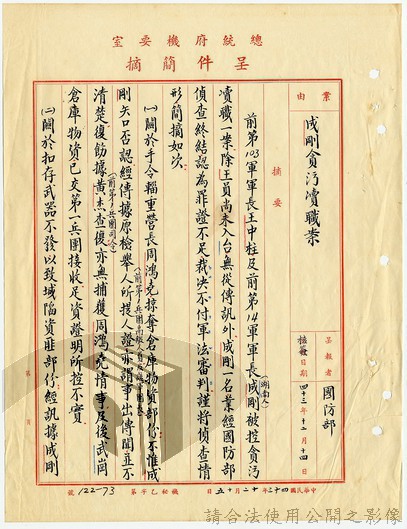 總統府機要室
呈件簡摘
案由
成剛貪污瀆職案
呈報者
國防部
核簽日期
四十三年十二月十四日
摘要
前第103軍軍長王中柱及前第14軍軍長(湖南人)成剛被控貪污
瀆職一案除王員尚未入台無從傳訊外成剛一名業經國防部
偵查終結認為罪證不足裁決不付軍法審判謹將偵查情
形簡摘如次
㈠關於手令輜重營長周鴻堯掠奪倉庫物資部份不惟成
剛矢口否認經傳據原檢舉人所提人證亦謂事出傳聞並不
清楚復飭據黃杰查復亦無捕獲周鴻堯情事及後武岡
倉庫物資已交第一兵團接收足資證明所控不實
㈡關於扣存武器不發以致城陷資匪部份經訊據成剛
中華民國四十三年十二月十五日
機秘乙字第122-73號
第 頁
請合法使用公開之影像